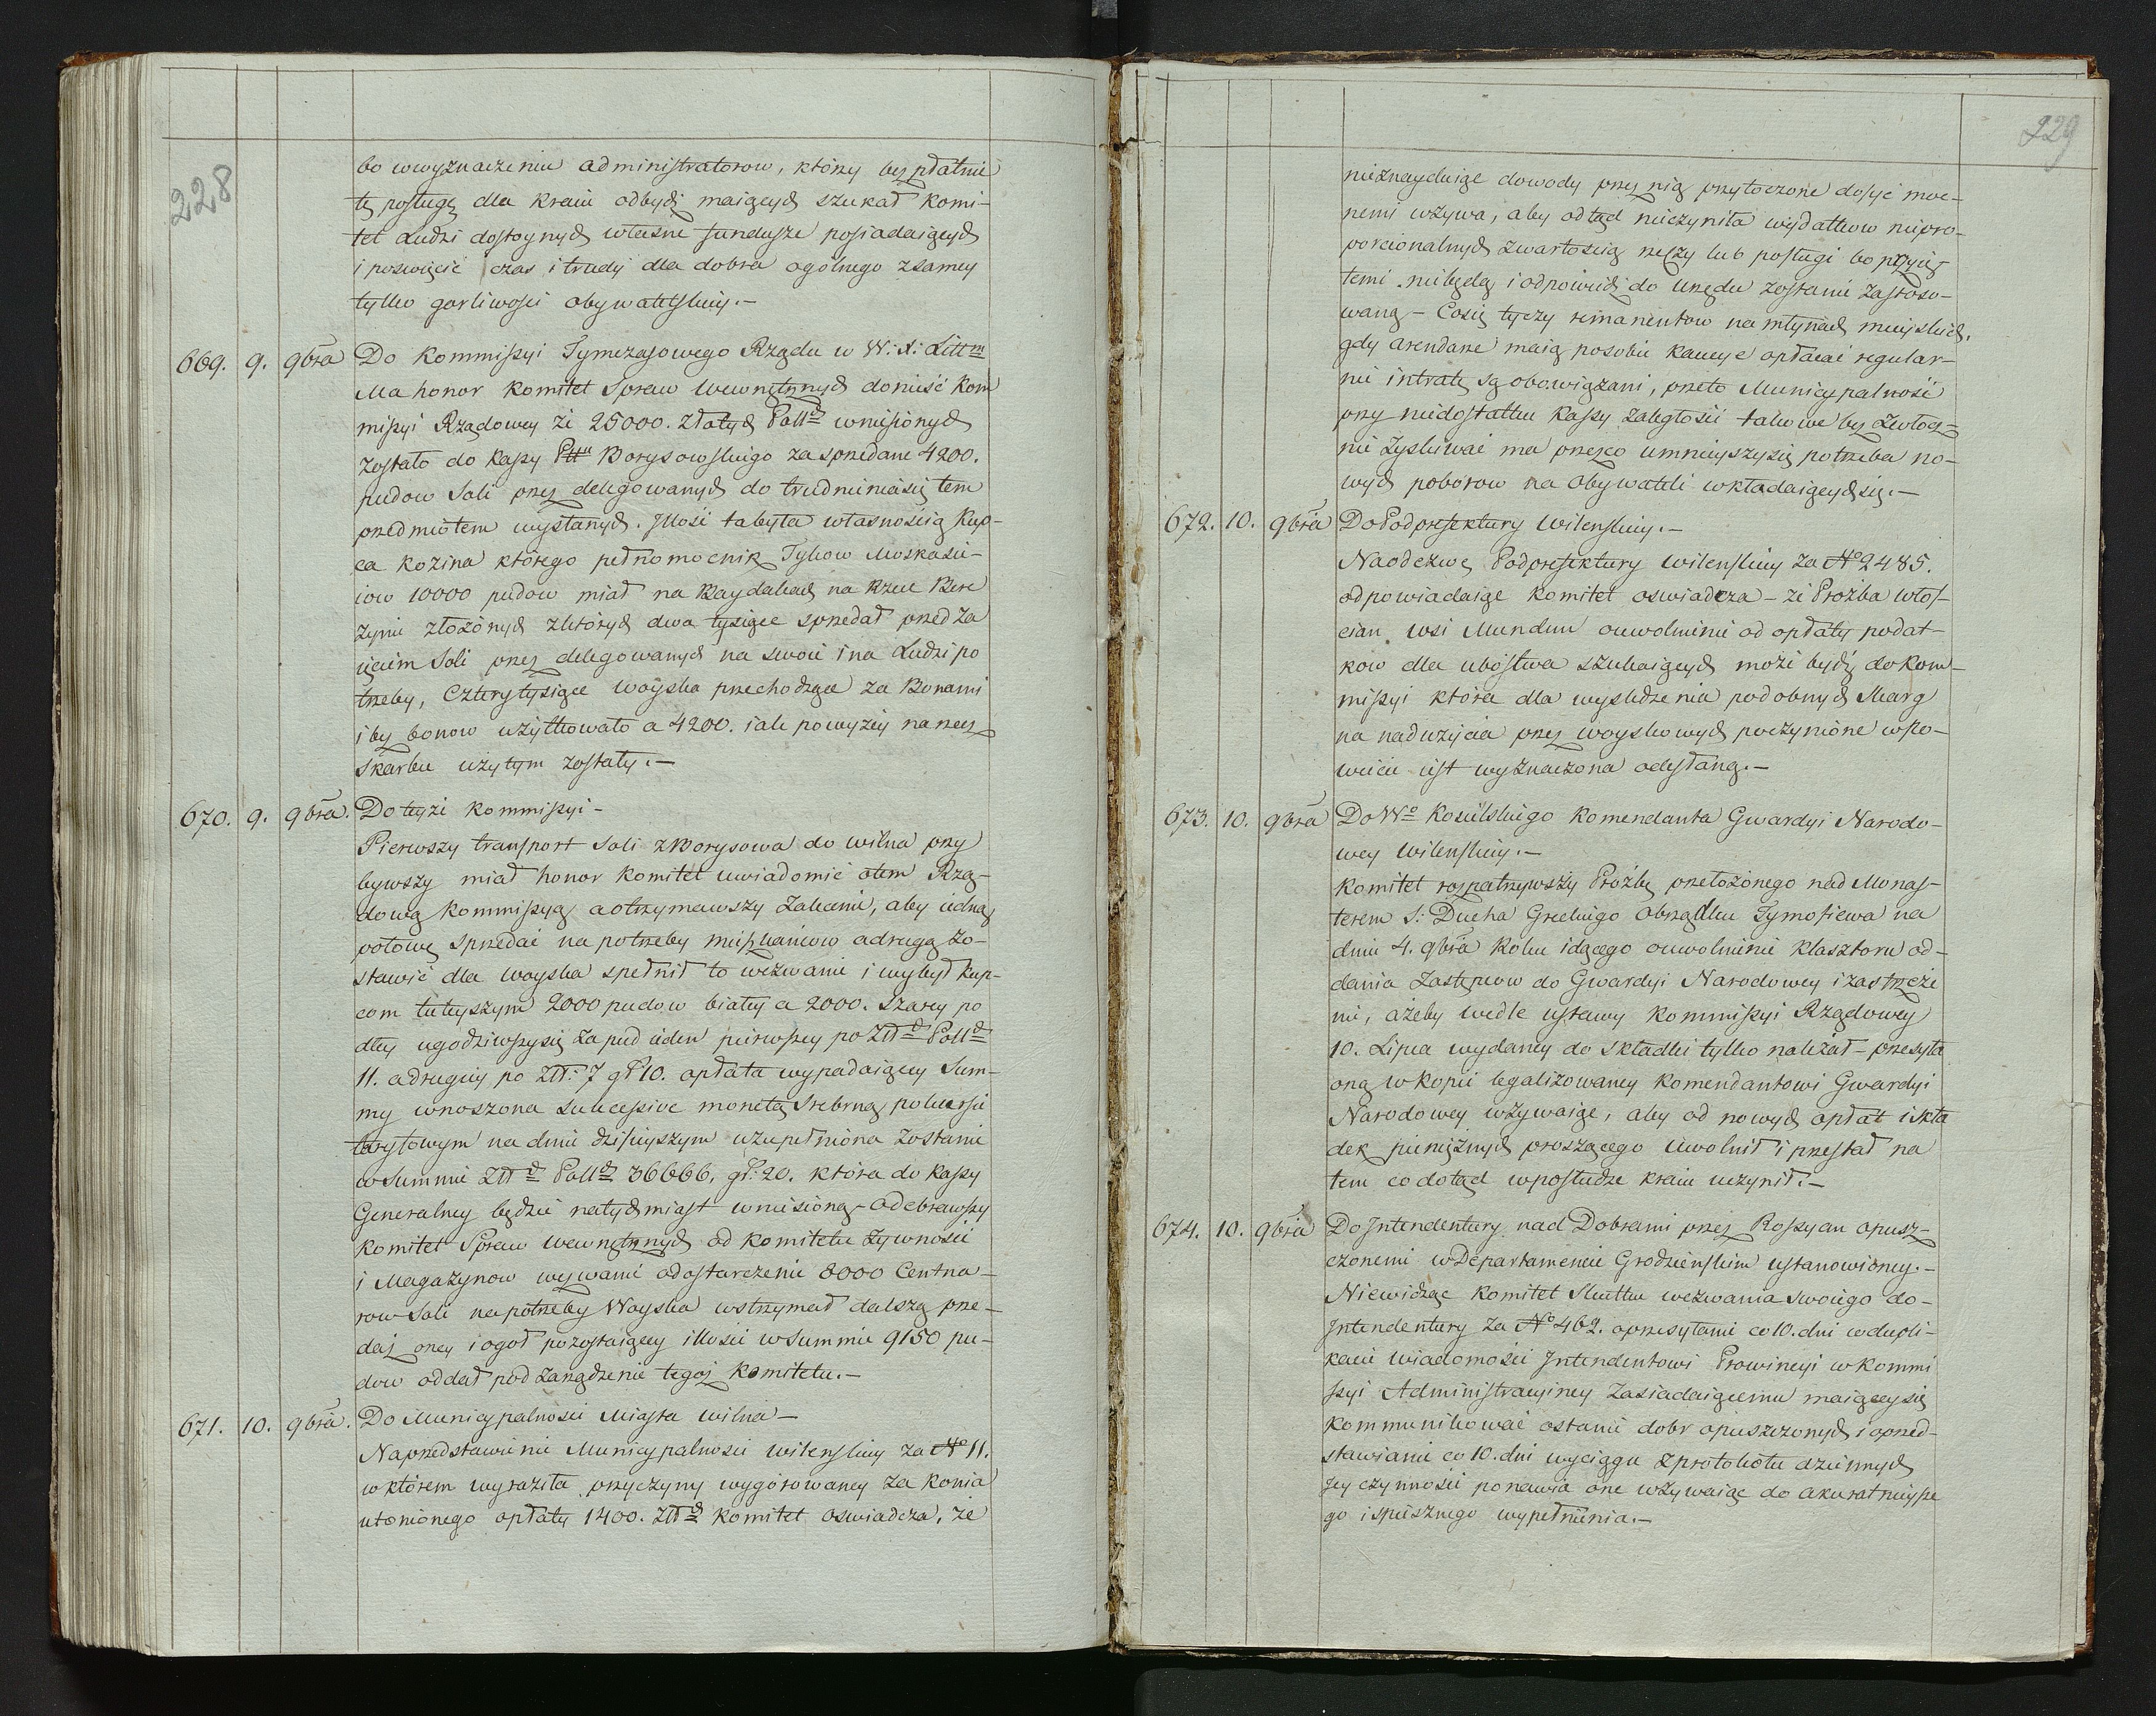 228
bo wwyznaczeniu administratorow, którzy bezpłatnie
tę posługę dla kraiu odbydź maiących szukał komi-
tet Ludzi dostoynych własne fundusze posiadaiących
i poswięcić czas i trudy dla dobra ogólnego z samey
tylko gorliwości obywatelskiey.—
669. 9. 9bra Do Kommissyi Tymczasowego Rządu w W: X: Littm
Ma honor Komitet Spraw Wewnętrznych donieść Kom
missyi Rządowey że 25000. Złotych Pollch wniesionych
zostało do Kassy Pttu Borysowskiego za sprzedane 4200.
pudow Soli przez delegowanych do trudnienia się tem
przedmiotem wysłanych. Ilość ta była własnością Kup-
ca Kozina którego pełnomocnik Tykow Moskasie-
iow 10000 pudow miał na Baydakach na Rzece Bere
zynie złożonych z których dwa tysiące sprzedał przed za
ięciem Soli przez delegowanych na swoie i na Ludzi po
trzeby, Cztery tysiące woyska przechodzące za Bonami
i bez bonow użytkowało a 4200. iak powyżey na rzecz
skarbu użytym zostały.—
670. 9. 9bra. Do teyże Kommissyi-
Pierwszy transport Soli z Borysowa do Wilna przy
bywszy miał honor Komitet uwiadomić o tem Rzą-
dową Kommissyą a otrzymawszy Zalecenie, aby iedną
połowę sprzedać na potrzeby mieszkańcow a drugą zo-
stawić dla woyska spełnił to wezwanie i wybył kup-
com tuteyszym 2000 pudow białey a 2000. szarey po
dłey ugodziwszy się za pud ieden pierwszey po Złłch Pollch
11. a drugiey po Złł: 7 gr 10. opłata wypadaiącey Sum-
my wnoszona successive monetą srebrną po kursie
taryfowym na dniu dzisieyszym uzupełniona zostanie
w Summie Złłch Pollch 36666. gr: 20. która do Kassy
Generalney będzie natychmiast wniesioną- Odebrawszy
Komitet Spraw Wewnętrznych od Komitetu Żywności
i Magazynow wezwanie o dostarczenie 8000 Centna-
row Soli na potrzeby Woyska wstrzymał dalszą prze-
daż oney i ogoł pozostaiącey illości w Summie 9150 pu-
dow oddał pod zarządzenie tegoż Komitetu.—
671. 10. 9bra. Do Municypalności Miasta Wilna—
Na przedstawienie Municypalności Wileńskiey za No 11.
w którem wyraziła przyczyny wygórowaney za konia
utonionego opłaty 1400. Złłch Komitet oswiadcza, że
229
nieznayduiąc dowody przez nią przytoczone dosyć moc-
nemi wzywa, aby odtąd nieczyniła wydatkow niepro-
porcionalnych z wartością rzeczy lub posługi bo
temi niebędą i odpowiedź do Urzędu zostanie zastoso-
waną — Cosię tyczy remanentow na młynach mieyskich,
gdy arendarze maią po sobie kaucye opłacać regular-
nie intratę są obowiązani, przeto Municypalność
przy niedostatku Kassy zaległości takowe bez zwłocz-
nie zyskiwać ma przezco umnieyszy się potrzeba no-
wych poborow na obywateli wkładaiących się.—
672. 10. 9bra Do Podprefektury Wileńskiey.—
Na odezwę Podprefektury Wileńskiey za No 2485.
odpowiadaiąc Komitet oswiadcza — że Proźba włos-
cian wsi Mundun o uwolnienie od opłaty podat-
kow dla ubóstwa szukaiących może bydź do Kom-
missyi która dla wysledzenia podobnych Skarg
na nadużycia przez woyskowych poczynione w Po-
wiecie iest wyznaczona odesłaną.—
673. 10. 9bra Do Wo Kosielskiego Komendanta Gwardyi Narodo-
wey Wileńskiey.—
Komitet rozpatrzywszy Proźbę przełożonego nad Monas-
terem S: Ducha Greckiego obrządku Tymofiewa na
dniu 4. 9bra Roku idącego o uwolnienie klasztoru od-
dania Zastępcow do Gwardyi Narodowey i zastrzeże
nie, ażeby wedle ustawy Kommissyi Rządowey
10. Lipca wydaney do składki tylko należał — przesyła
oną w kopii legalizowaney Komendantowi Gwardyi
Narodowey wzywaiąc, aby od nowych opłat i skła
dek pieniężnych proszącego uwolnił i przestał na
tem co dotąd w posłudze kraiu uczynił.—
674. 10. 9bra Do Intendentury nad Dobrami przez Rossyan opusz-
czonemi w Departamencie Grodzieńskim ustanowioney.—
Niewidząc Komitet Skutku wezwania swoiego do-
Intendentury za No 462. o przesyłanie co 10. dni w dupli-
kacie wiadomości Intendentowi Prowincyi w Kommi
ssyi Administracyiney zasiadaiącemu maiącey się
kommunikować o stanie dobr opuszczonych i o przed-
stawianie co 10. dni wyciągu z protokółu dziennych
Jey czynności ponawia one wzywaiąc do akuratnieysze
go i spiesznego wypełnienia.—